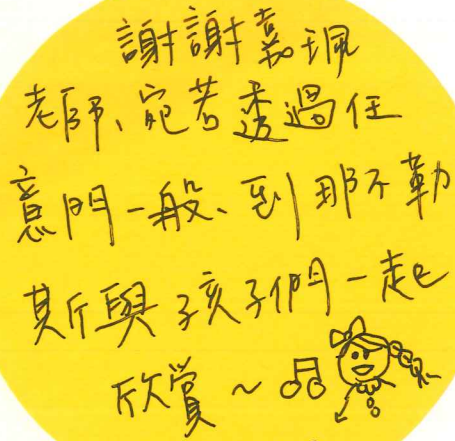 謝謝嘉珮
老師、宛若透過任
意門一般、到那不勒
斯與孩子們一起
欣賞~